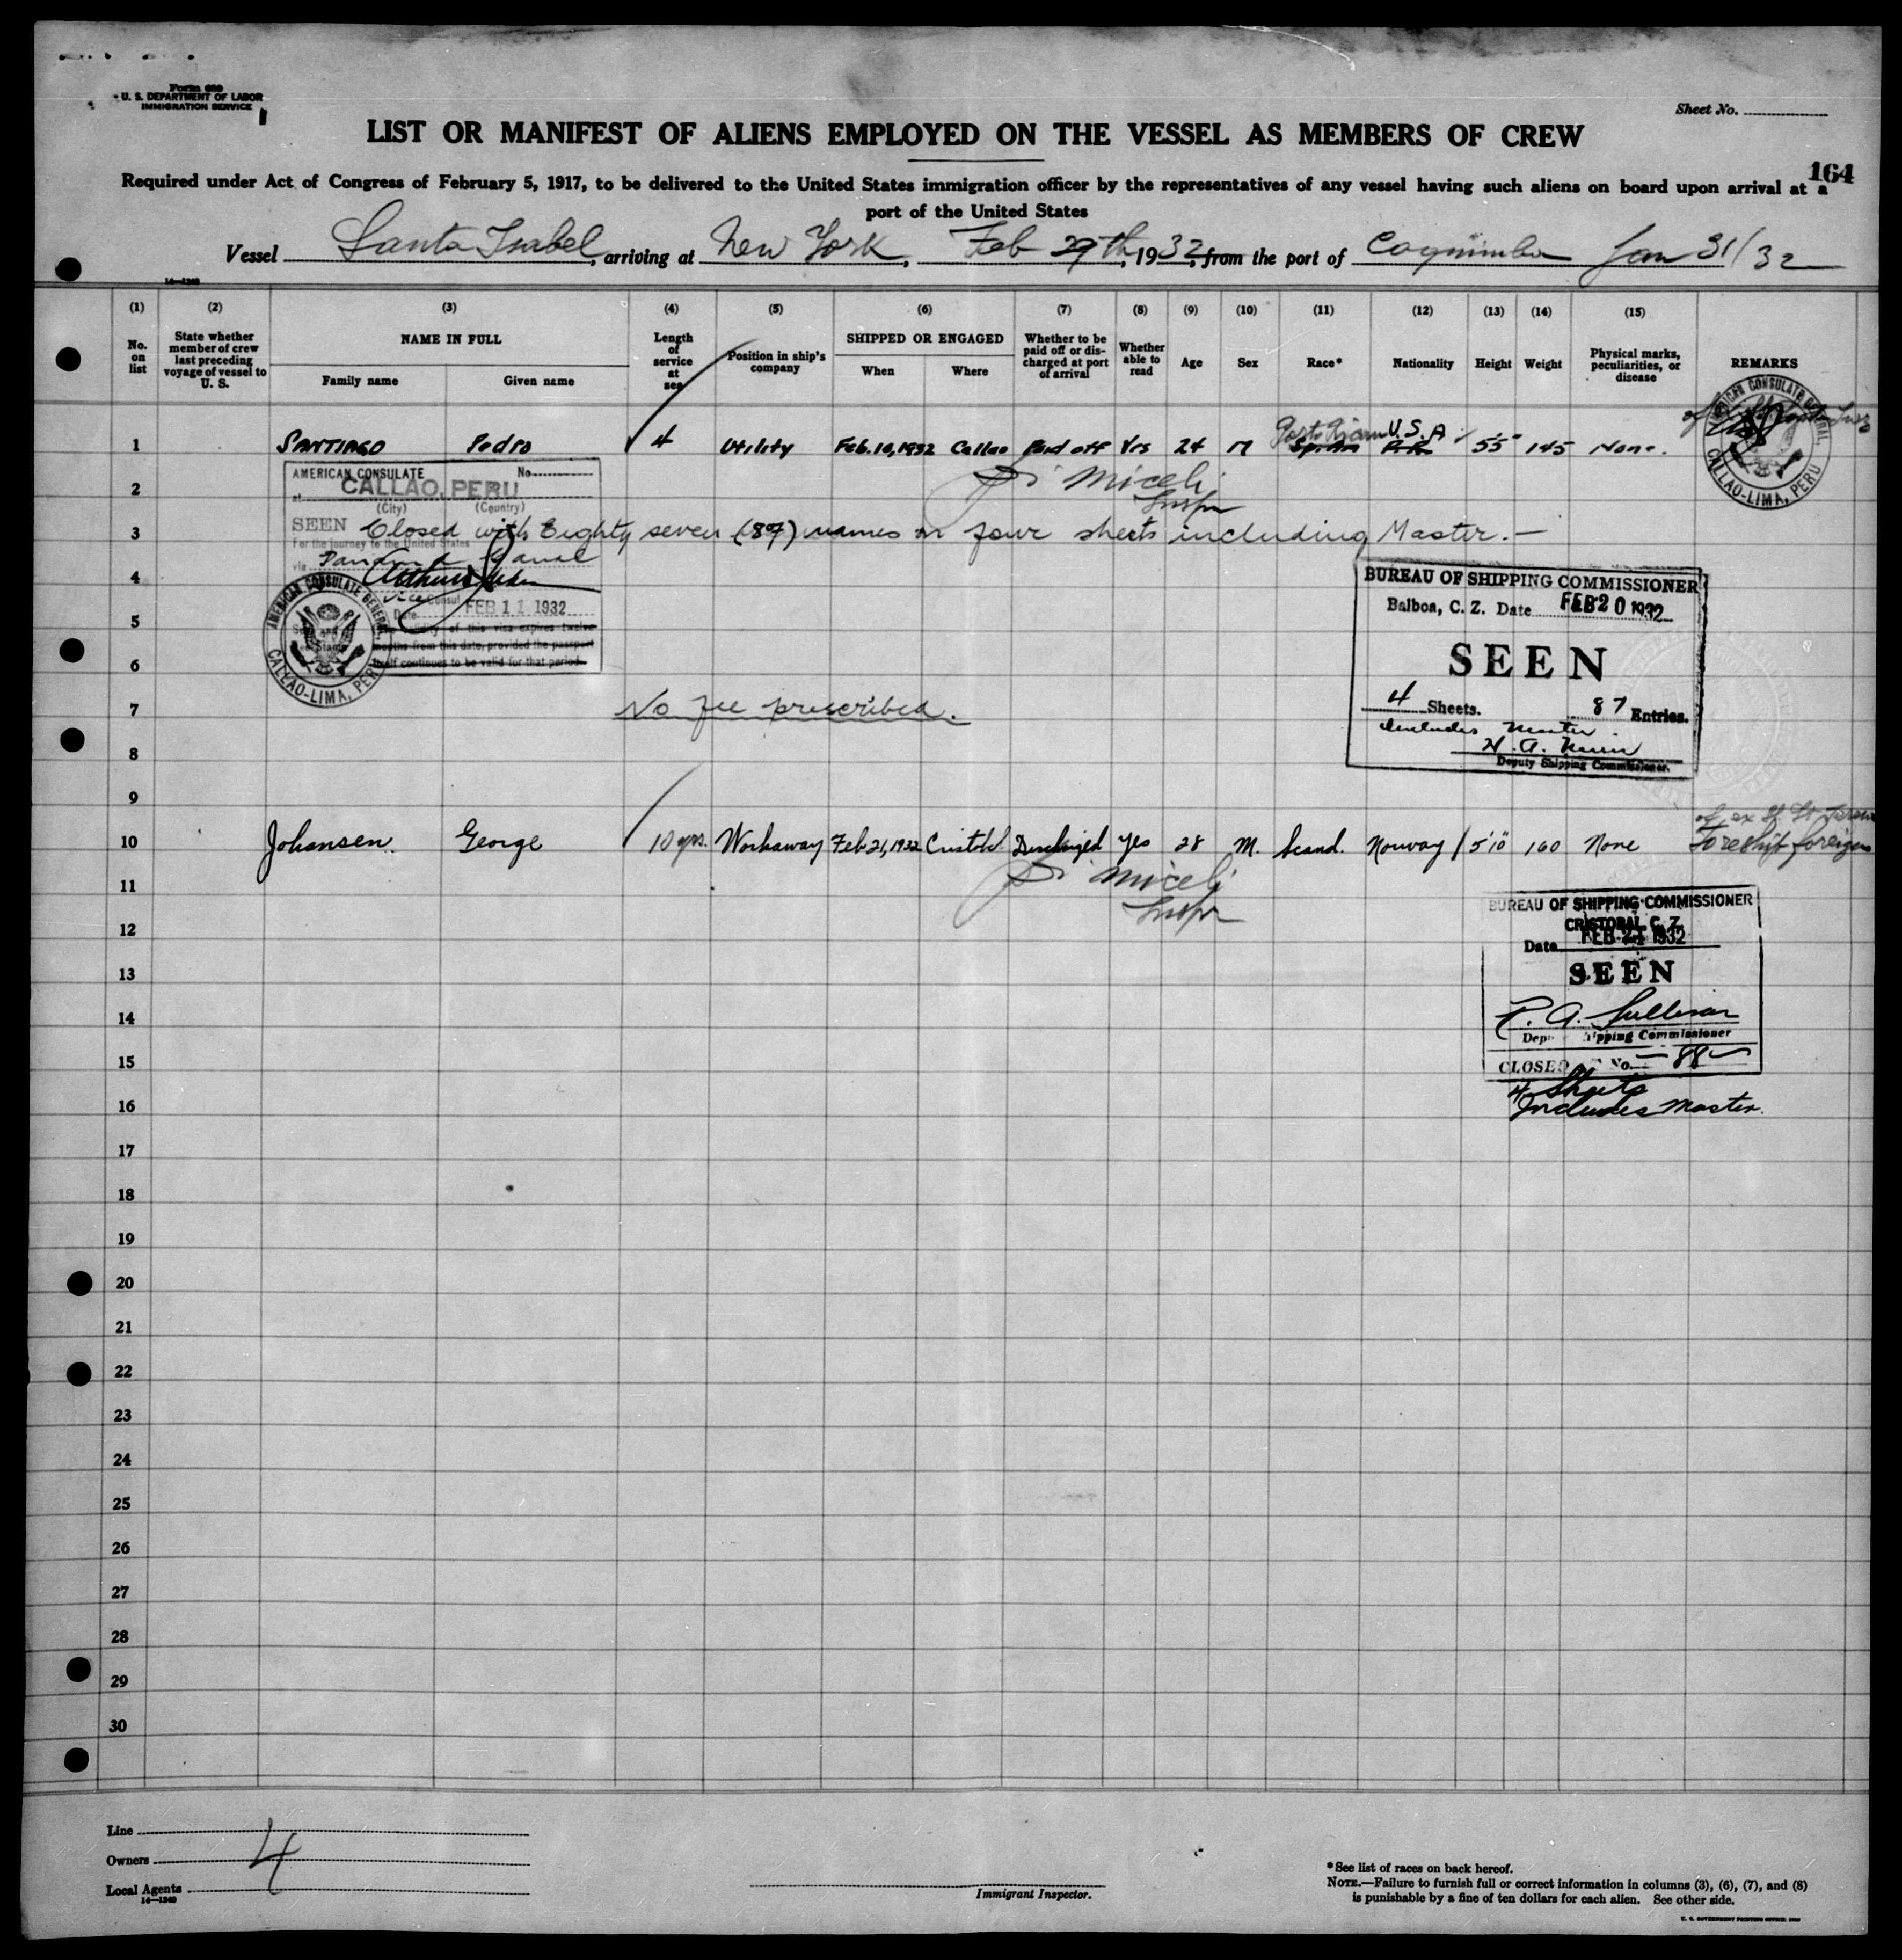 Form 680
U. S. DEPARTMENT OF LABOR
IMMIGRATION SERVICE
Sheet No.
LIST OR MANIFEST OF ALIENS EMPLOYED ON THE VESSEL AS MEMBERS OF CREW
164
Required under Act of Congress of February 5, 1917, to be delivered to the United States immigration officer by the representatives of any vessel having such aliens on board upon arrival at a
port of the United States
Vessel Santa Isabel, arriving at New York, Feb 29th, 1932, from the port of Coquimbo Jan 31/32
14—1240
(1) (2) (3) (4) (5) (6) (7) (8) (9) (10) (11) (12) (13) (14) (15)
No. on list
State whether member of crew last preceding voyage of vessel to U. S.
NAME IN FULL
Family name
Given name
Length of service at sea
Position in ship's company
SHIPPED OR ENGAGED
When
Where
Whether to be paid off or discharged at port of arrival
Whether able to read
Age
Sex
Race*
Nationality
Height
Weight
Physical marks, peculiarities, or disease
REMARKS
1 SANTIAGO Pedro 4 Utility Feb. 10, 1932 Callao Paid off Yes 24 M Porto Rican U.S.A 5'5" 145 None.
AMERICAN CONSULATE GENERAL, CALLAO-LIMA, PERU
Miceli
Inspr
2
AMERICAN CONSULATE No.
at CALLAO, PERU
(City) (Country)
3
SEEN Closed with Eighty seven (87) names on four sheets including Master.—
For the journey to the United States
via Panama Canal
4
Arthur
Vice Consul
5
Date FEB 11 1932
The validity of this visa expires twelve
months from this date, provided the passport
itself continues to be valid for that period.
6
AMERICAN CONSULATE GENERAL, CALLAO-LIMA, PERU
Seal and Stamp
BUREAU OF SHIPPING COMMISSIONER
Balboa, C. Z. Date FEB 20 1932
SEEN
4 Sheets. 87 Entries.
Includes Master.
Deputy Shipping Commissioner.
7
No fee prescribed.
8
9
10 Johansen. George 10 yrs. Workaway Feb 21, 1932 Cristobal Discharged Yes 28 M. Scand. Norway 5'10" 160 None To reship foreign
Miceli
Inspr
11
12
BUREAU OF SHIPPING COMMISSIONER
CRISTOBAL C. Z.
Date FEB 21 1932
13
SEEN
14
P. A. Sullivan
Shipping Commissioner
15
CLOSED No. — 88 —
16
4 Sheets
Includes Master.
17
18
19
20
21
22
23
24
25
26
27
28
29
30
Line
Owners
Local Agents
14—1240
4
Immigrant Inspector.
*See list of races on back hereof.
NOTE.—Failure to furnish full or correct information in columns (3), (6), (7), and (8)
is punishable by a fine of ten dollars for each alien. See other side.